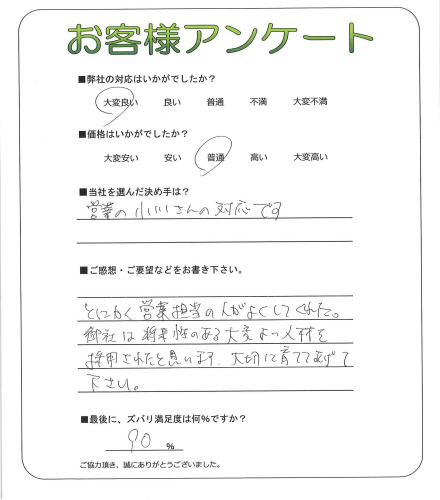 お客様アンケート
■弊社の対応はいかがでしたか？
大変良い 良い 普通 不満 大変不満
■価格はいかがでしたか？
大変安い 安い 普通 高い 大変高い
■当社を選んだ決め手は？
営業の小川さんの対応です
■ご感想・ご要望などをお書き下さい。
とにかく営業担当の人がよくしてくれた。
御社は将来性のある大変よい人材を
採用されたと思います、大切に育ててあげて
下さい。
■最後に、ズバリ満足度は何%ですか？
90 %
ご協力頂き、誠にありがとうございました。